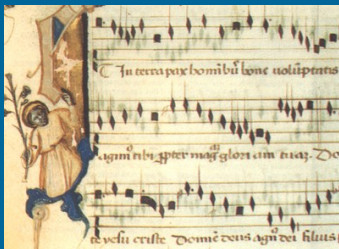 Et in terra pax hominibꝰ bone volūptatis
agimꝰ tibi ꝓpter mag̃ gloriam tuaꝫ. Do
te yesu criste Domine deus agnꝰ dei filius